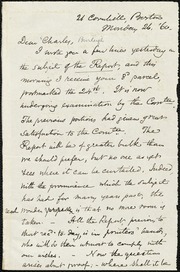 21 Cornhill, Boston
Monday 26, 60.
Dear Charles, Burleigh
I wrote you a few lines yesterday on
the subject of the Report, and this
morning I receive your 8th parcel,
postmarked the 24th. It is now
undergoing examination by the Comtee.
The previous portions had given great
satisfaction to the Comtee. The
Report will be of greater bulk than
we should prefer, but no one as yet
sees where it can be curtailed. Indeed
with the prominence which the subject
has had for many years past, the
wonder is that no more room is
taken. All the Report previous to
that rec'd to-day is in printers' hands,
who will in their utmost to comply
with our wishes. Now the question
arises about proof; where shall it be